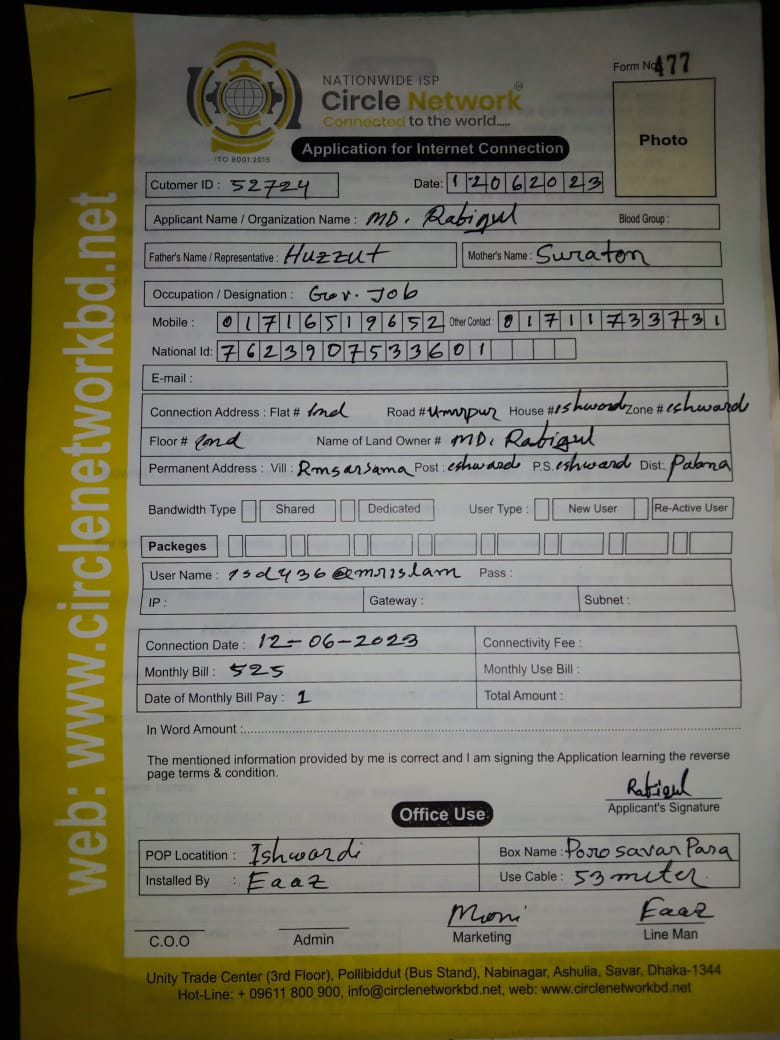 Form No 477
NATIONWIDE ISP
Circle Network
Connected to the world.....
ISO 9001:2015
Application for Internet Connection
Photo
Cutomer ID : 52724 Date: 12062023
Applicant Name / Organization Name : MD. Rabigul Blood Group :
Father's Name / Representative : Huzzut Mother's Name : Suraton
Occupation / Designation : Gov. Job
Mobile : 01716519652 Other Contact : 01711733731
National Id: 7623907533601
E-mail :
Connection Address : Flat # Road # Umirpur House # eshword Zone # eshward
Floor # 2nd Name of Land Owner # MD. Rabigul
Permanent Address : Vill : Post : eshward P.S. eshward Dist: Pabna
Bandwidth Type Shared Dedicated User Type : New User Re-Active User
Packeges
User Name : @mrislam Pass :
IP : Gateway : Subnet :
Connection Date : 12-06-2023 Connectivity Fee :
Monthly Bill : 525 Monthly Use Bill :
Date of Monthly Bill Pay : 1 Total Amount :
In Word Amount :
The mentioned information provided by me is correct and I am signing the Application learning the reverse
page terms & condition.
Rabigul
Applicant's Signature
Office Use
POP Locatition : Ishwardi Box Name : Poro savar Para
Installed By : Eaaz Use Cable : 53 miter
Moni Eaaz
C.O.O Admin Marketing Line Man
Unity Trade Center (3rd Floor), Pollibiddut (Bus Stand), Nabinagar, Ashulia, Savar, Dhaka-1344
Hot-Line: + 09611 800 900, info@circlenetworkbd.net, web: www.circlenetworkbd.net
web: www.circlenetworkbd.net